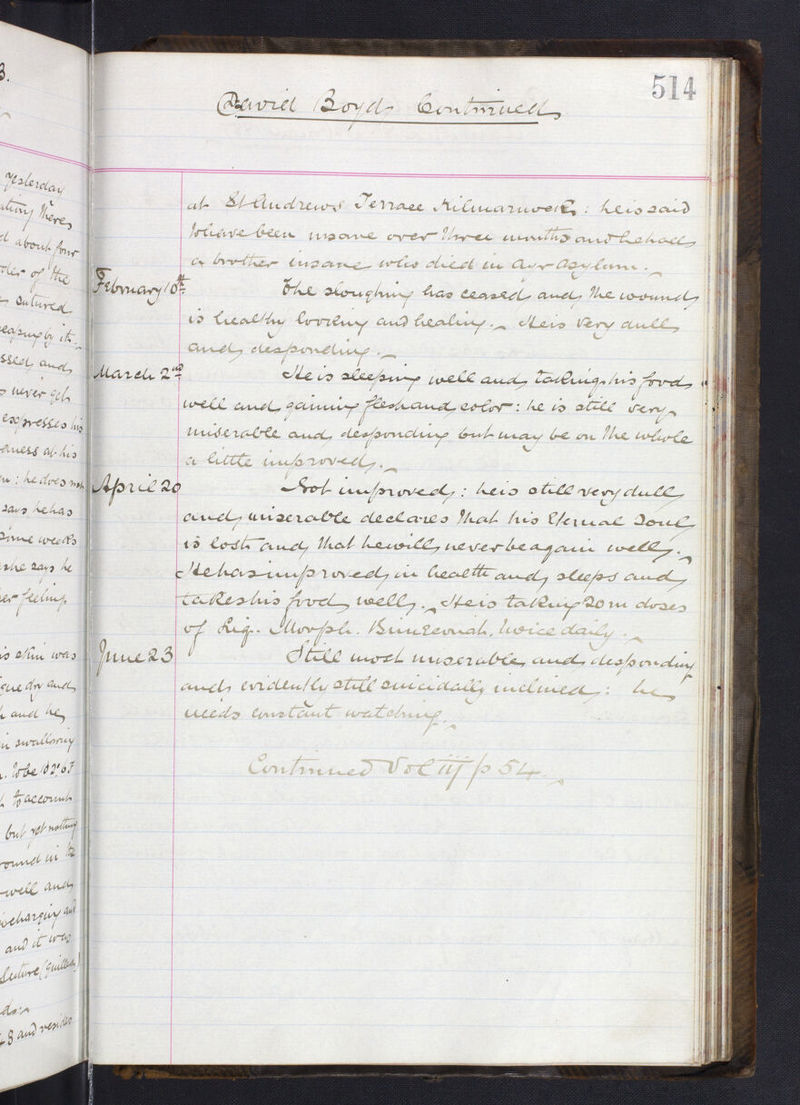 3.
yesterday
there
d about four
of the
sutured
by its
ssed and
never gets
expresses his
at his
: he does not
says he has
some weeks
she says he
feeling
is skin was
and
and he
in swallowing
to account
but yet nothing
wound in the
well and
discharging and
and it was
suture
48 and resides
514
David Boyd Continued
at St Andrews Terrace Kilmarnock: he is said
to have been insane over three months and he had
a brother insane who died in Ayr Asylum.
February 10th The sloughing has ceased and the wound
is healthy looking and healing. He is very dull
and desponding.
March 2nd He is sleeping well and taking his food
well and gaining flesh and color: he is still very
miserable and desponding but may be on the whole
a little improved.
April 20 Not improved: he is still very dull
and miserable declares that his Eternal Soul
is lost and that he will never be again well.
He has improved in health and sleeps and
takes his food well. He is taking 20m doses
of Liq. Morph. Bimeconat. twice daily.
June 23 Still most miserable and desponding
and evidently still suicidally inclined: he
needs constant watching.
Continued Vol iij p 54